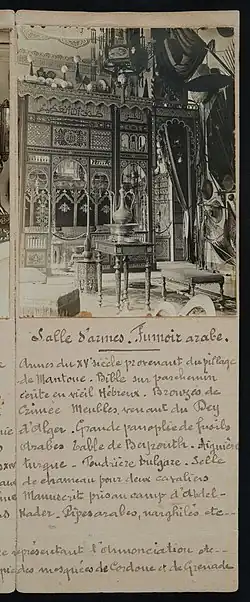 Salle d'armes. Fumoir arabe.
Armes du XVe siècle provenant du pillage
de Mantoue. Bible sur parchemin
écrite en vieil Hébreux. Bronzes de
Crimée Meubles venant du Dey
d'Alger. Grande panoplie de fusils
Arabes Table de Beyrouth. Aiguière
turque. Poudrière bulgare. Selle
de chameau pour deux cavaliers
Manuscrit pris au camp d'Abdel-
Kader. Pipes arabes, narghilés etc—
représentant l'Annonciation etc—
des mosquées de Cordoue et de Grenade